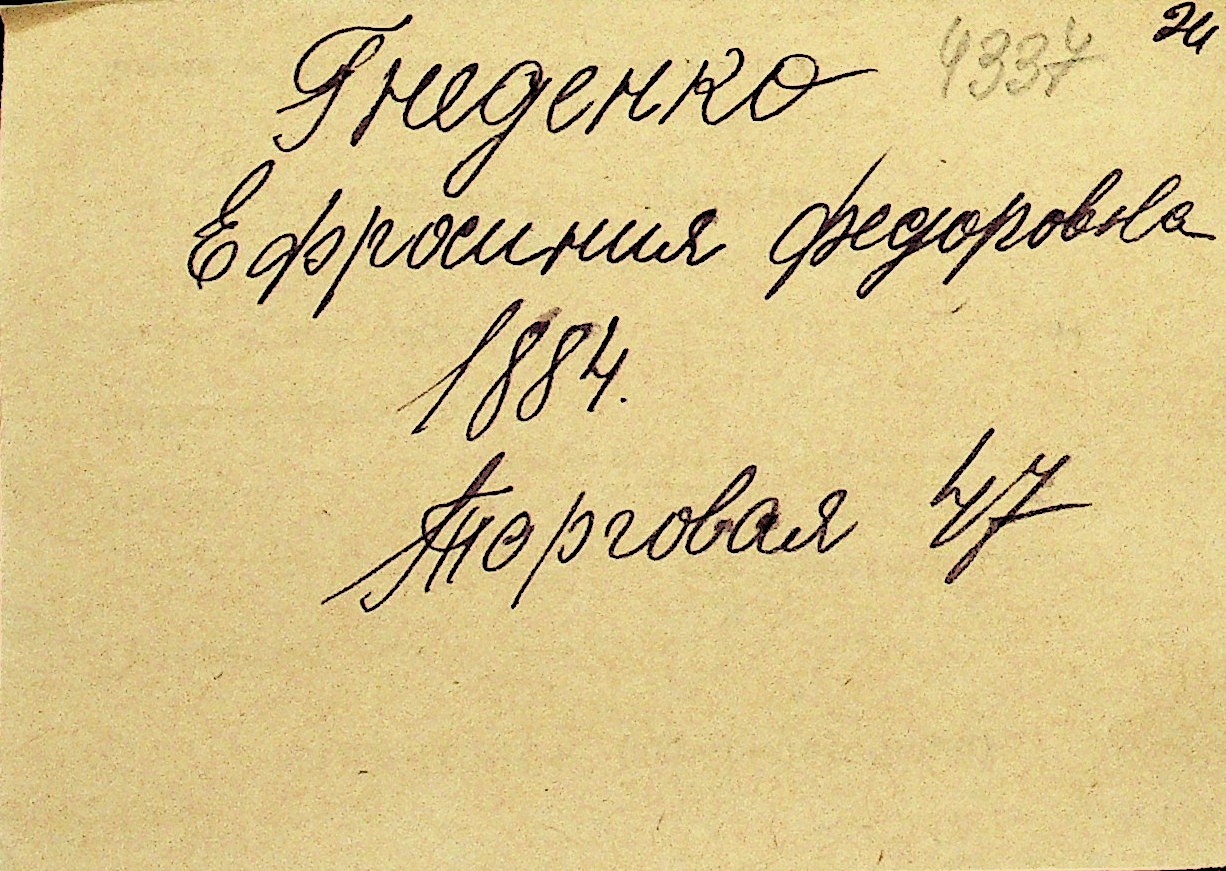 Гнеденко
Ефросиния Федоровна
1884.
Торговая 47